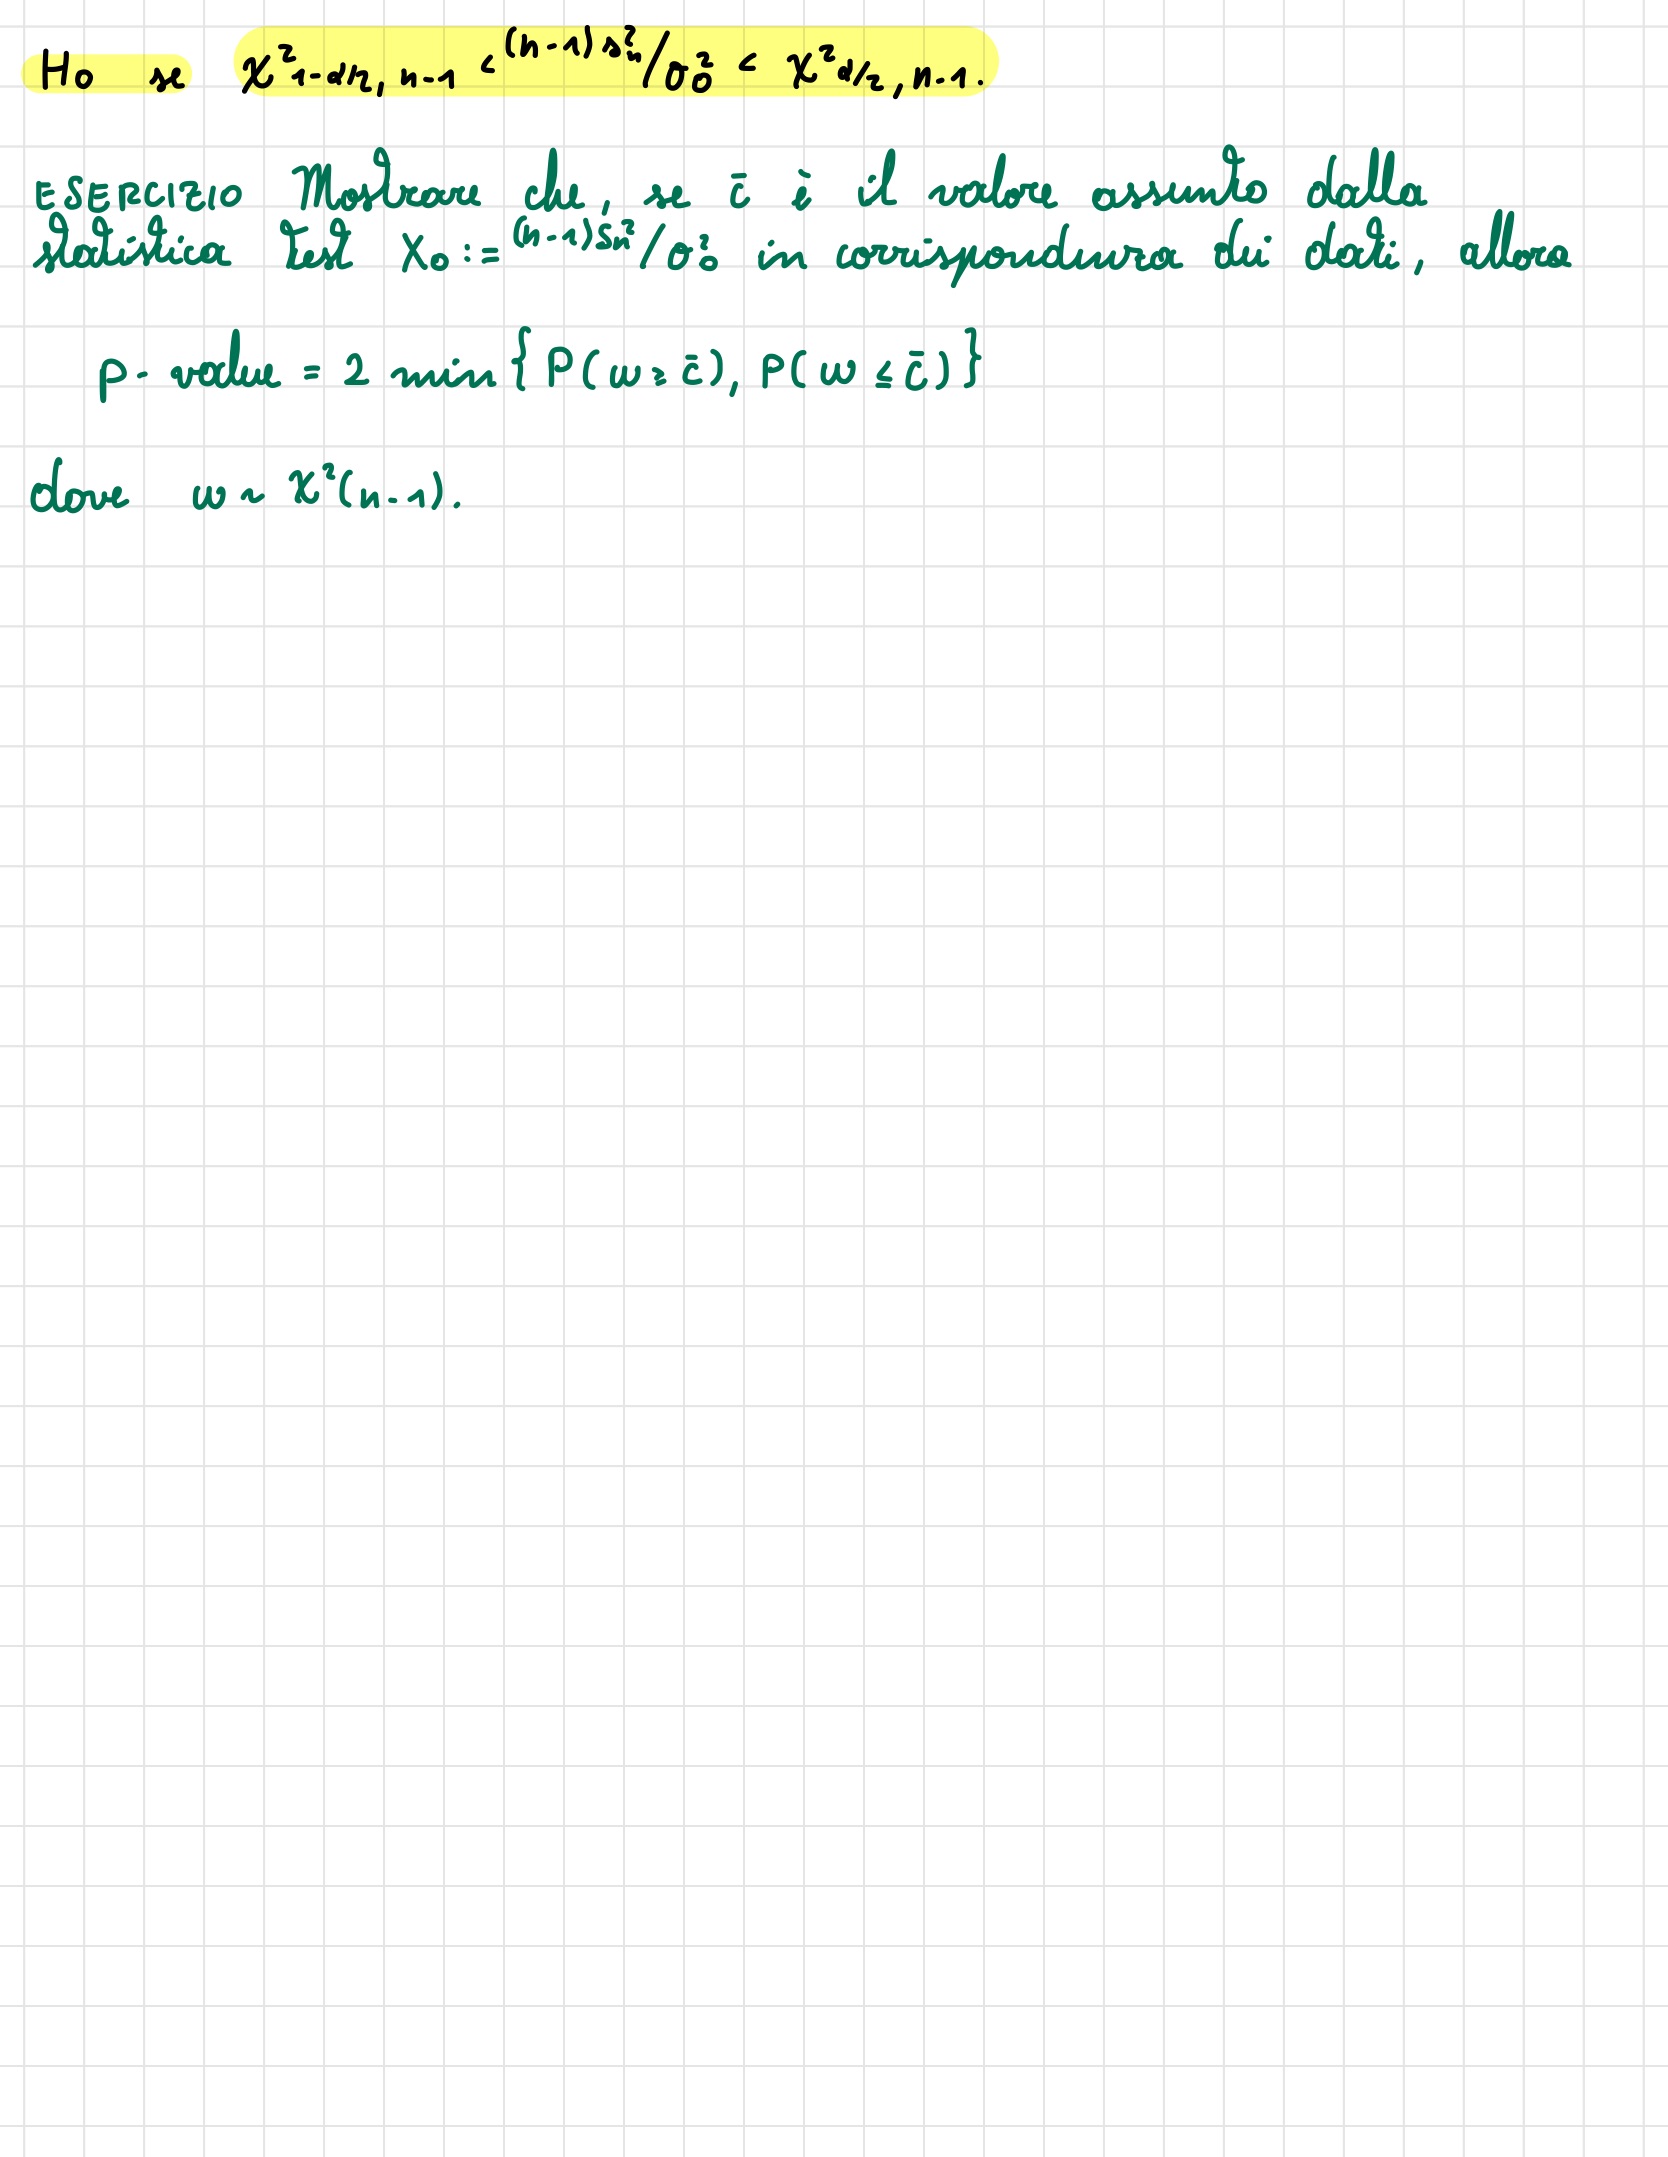 H₀ se χ²₁₋α/₂, ₙ₋₁ < (n-1)s²ₙ/σ₀² < χ²α/₂, ₙ₋₁.
ESERCIZIO Mostrare che, se c̄ è il valore assunto dalla
statistica test X₀ := (n-1)S²ₙ/σ₀² in corrispondenza dei dati, allora
p-value = 2 min{P(W ≥ c̄), P(W ≤ c̄)}
dove W ~ χ²(n-1).